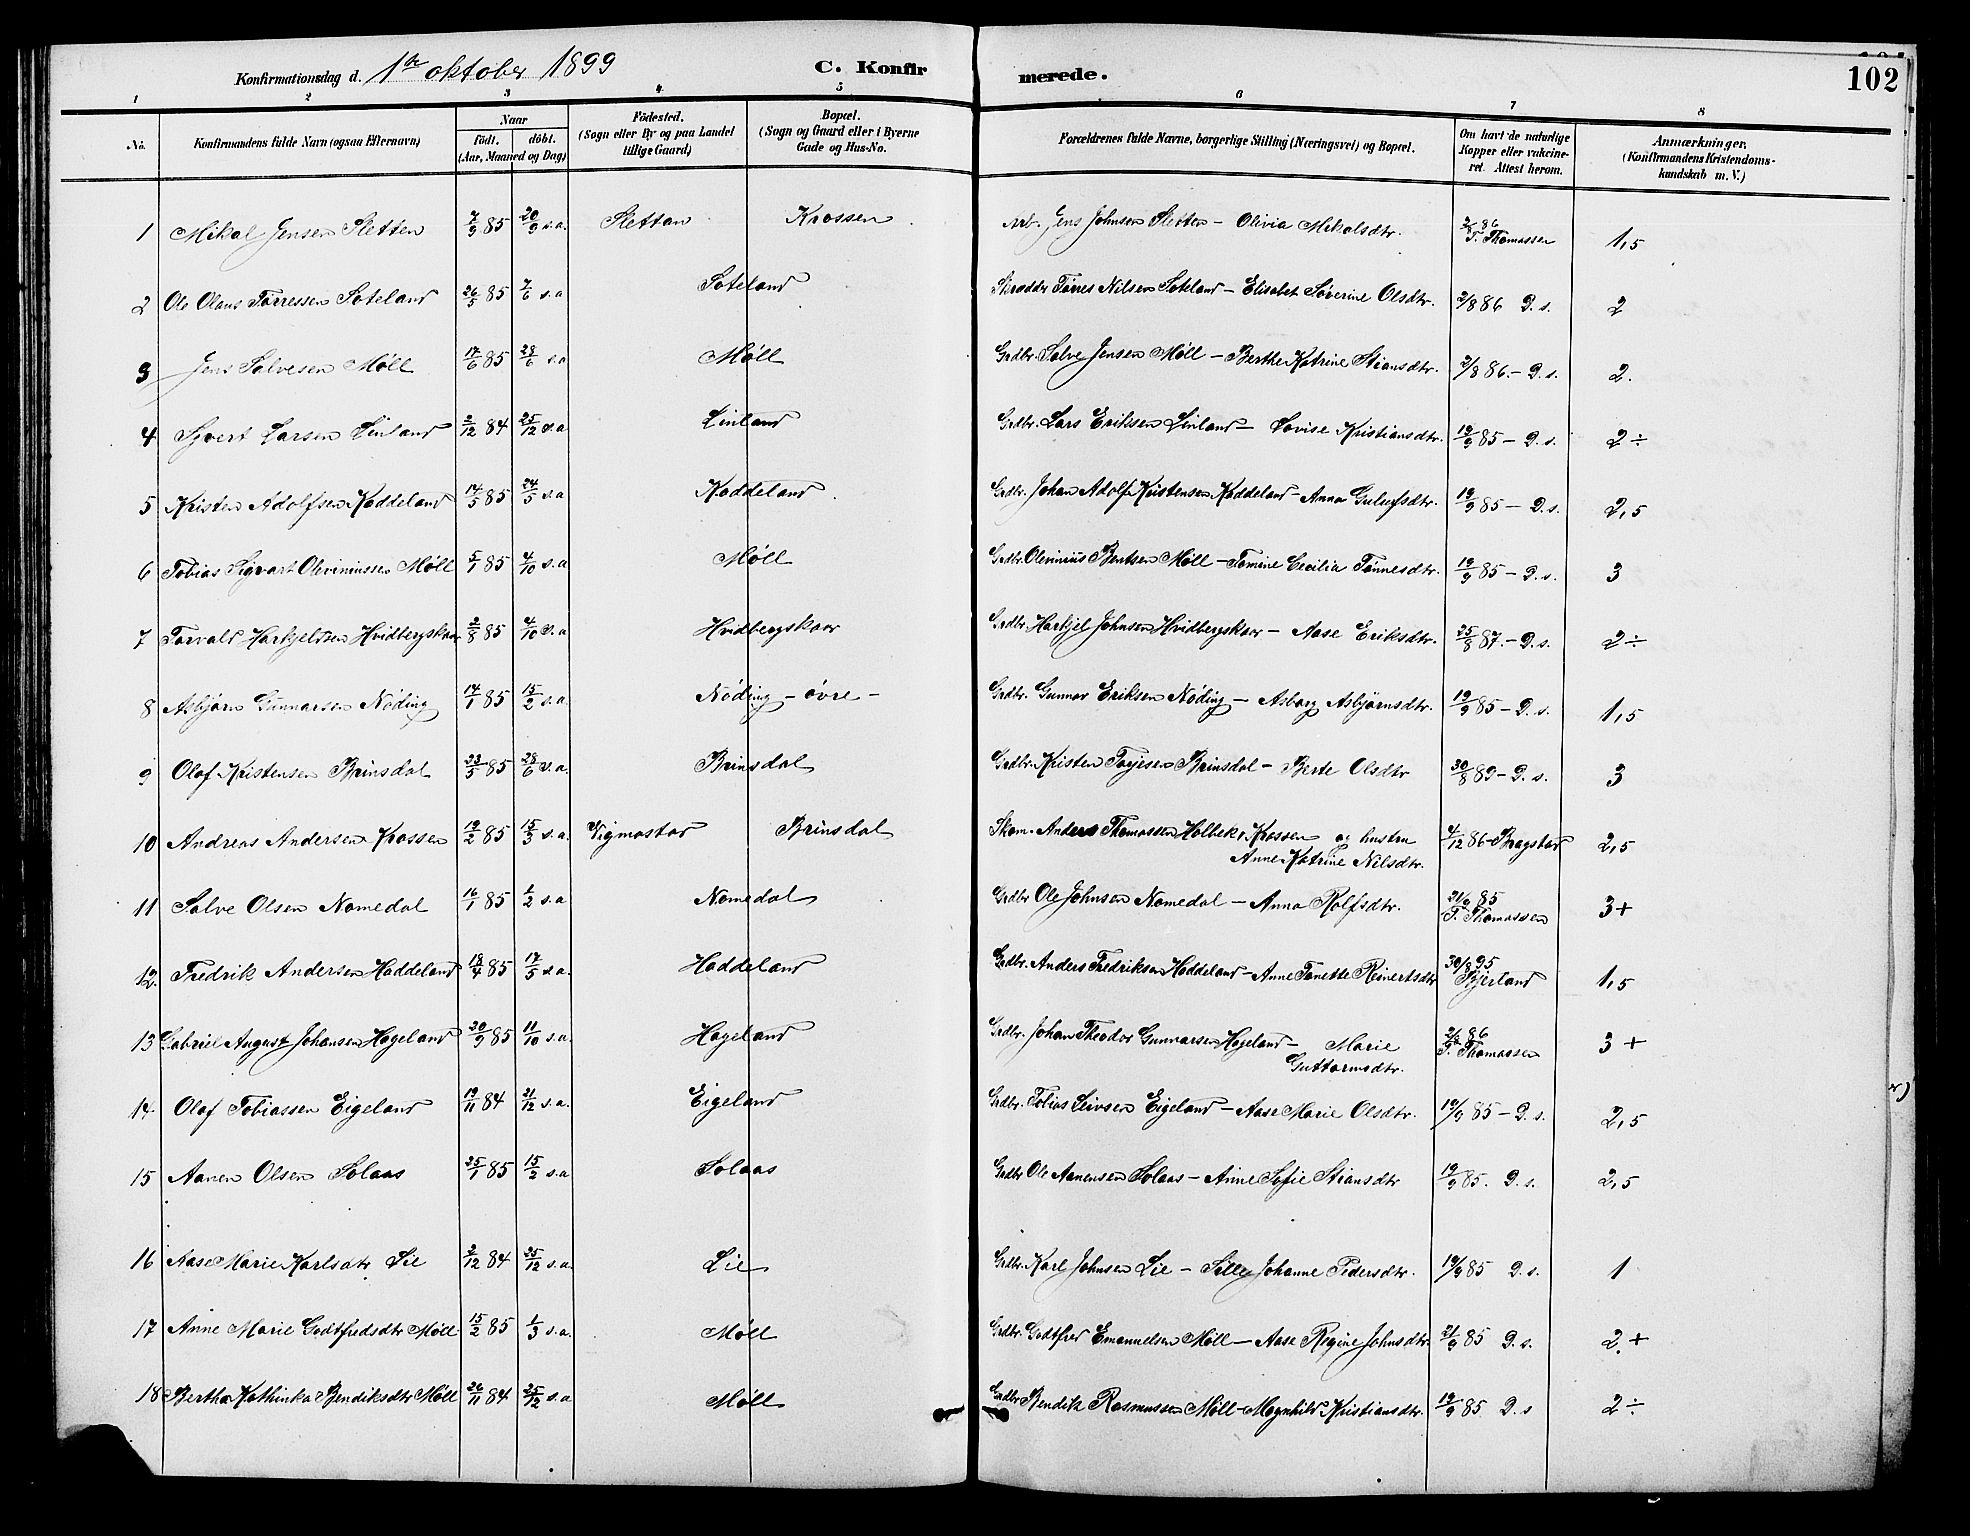 Konfirmationsdag d. 1ste oktober 1899 C. Konfirmerede. 102
1 2 3 4 5 6 7 8
No. Konfirmandens fulde Navn (ogsaa Efternavn) Naar födt. döbt. (Aar, Maaned og Dag) Födested. (Sogn eller By og paa Landet tillige Gaard) Bopæl. (Sogn og Gaard eller i Byerne Gade og Hus-No. Forældrenes fulde Navne, borgerlige Stilling (Næringsvei) og Bopæl. Om havt de naturlige Kopper eller vakcineret. Attest herom. Anmærkninger. (Konfirmandens Kristendomskundskab m. V.)
1 Mikal Jensen Sletten 7/9 85 20/9 s.a. Slettan Krossen Arb. Jens Johnsen Sletten – Olivia Mikalsdtr. 2/8 86 T. Thomassen 1,5
2 Ole Olaus Tørressen Soteland 26/5 85 7/6 s.a Soteland Skrædder Tørres Nilsen Soteland – Elisabet Søverine Olsdtr. 2/8 86 D. s. 2
3 Jens Salvesen Møll 17/6 85 28/6 s.a Møll Grdbr. Salve Jensen Møll – Berthe Katrine Stiansdtr. 2/8 86. – D. s. 2.
4 Syvert Larsen Linland 2/12 84 25/12 s.a Linland Grdbr. Lars Erikssen Linland – Lovise Kristiansdtr. 19/9 85 – D. s. 2 ÷
5 Kristen Adolfsen Koddeland 14/5 85 24/5 s.a Koddeland Grdbr. Johan Adolf Kristensen Koddeland – Anna Gulufsdtr. 19/9 85 – D. s. 2,5
6 Tobias Sigvart Oleviniussen Møll 5/1 85 4/10 s.a Møll Grdbr. Olevinius Bentsen Møll – Tomine Cecilia Tønnesdtr. 19/9 85 – D. s. 3
7 Torvald Harkjelssen Hvidbergskaar 2/8 85 4/10 s.a Hvidbergskaar Grdbr. Harkjel Johnsen Hvidbergskaar – Aase Eriksdtr. 25/8 87. – D. s. 2 ÷
8 Asbjørn Gunnarsen Nøding 14/1 85 15/2 s.a. Nøding – øvre – Grdbr. Gunnar Eriksen Nøding – Asborg Asbjørnsdtr. 19/9 85 – D. s. 1,5
9 Olaf Kristensen Brinsdal 23/5 85 28/6 s.a. Brinsdal Grdbr. Kristen Tarjesen Brinsdal – Berte Olsdtr 30/8 89 – D. s. 3
10 Andreas Andersen Krossen 19/2 85 15/3 s.a. Vigmostad Brinsdal Skom. Anders Thomassen Holbek, Krossen og hustru 4/12 86 – Bragstad 2,5
Anne Katrine Nilsdtr.
11 Salve Olsen Nomedal 16/1 85 1/2 s.a Nomedal Grdbr Ole Johnsen Nomedal – Anna Rolfsdtr. 21/9 85 T. Thomassen 3 +
12. Fredrik Andersen Haddeland 18/4 85 17/5 s.a. Haddeland Grdbr. Anders Fredriksen Haddeland – Anne Tonette Reinertsdtr 30/8 95 Bjerland 1,5
13 Gabriel August Johansen Hageland 20/9 85 11/10 s.a. Hageland Grdbr. Johan Theodor Gunnarsen Hageland – Marie 2/8 86 T. Thomassen 3 +
Guttormsdtr.
14. Olaf Tobiassen Eigeland 19/11 84 21/12 s.a. Eigeland Grdbr. Tobias Seivsen Eigeland – Aase Marie Olsdtr. 19/9 85 – D. s. 2,5
15 Aanen Olsen Solaas 25/1 85 15/2 s.a Solaas Grdbr Ole Aanensen Solaas – Anne Sofie Stiansdtr 19/9 85. D. s. 2,5
16 Aase Marie Karlsdtr. Lie 2/12 84 25/12 s.a. Lie Grdbr. Karl Johnsen Lie – Sille Johanne Pedersdtr. 19/9 85 D. s. 1
17 Anne Marie Godtfredsdtr Møll 15/2 85 1/3 s.a. Møll Grdbr. Godtfred Emanuelsen Møll – Aase Regine Johnsdtr. 21/9 85 D. s. 2 +
18 Bertha Kathinka Bendiksdtr Møll 26/11 84 25/12 s.a Møll Grdbr Bendik Rasmussen Møll – Magnhild Kristiansdtr. 19/9 85 D. s 2 ÷